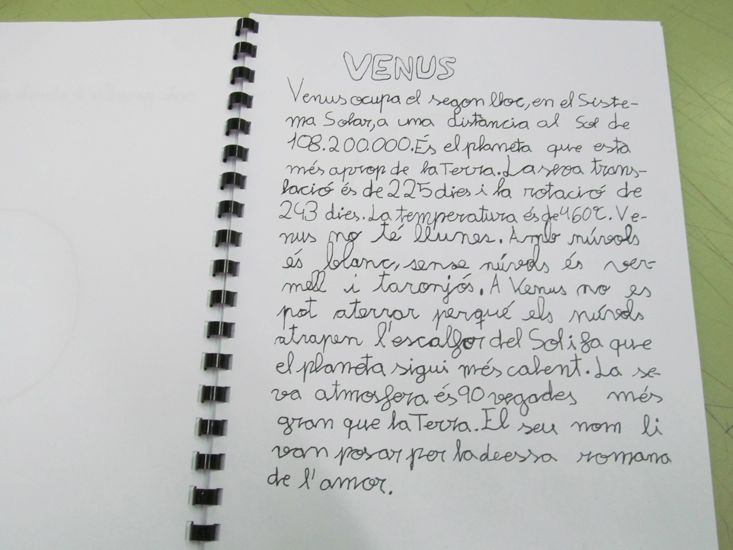 VENUS
Venus ocupa el segon lloc, en el Siste-
ma Solar, a una distància al Sol de
108.200.000. És el planeta que esta
més aprop de la Terra. La seva trans-
lació és de 225 dies i la rotació de
243 dies. La temperatura és de 460ºC. Ve-
nus no té llunes. Amb núvols
és blanc, sense núvols és ver-
mell i taronjós. A Venus no es
pot aterrar perqué els núvols
atrapen l'escalfor del Sol i fa que
el planeta sigui més calent. La se-
va atmosfera és 90 vegades més
gran que la Terra. El seu nom li
van posar per la deessa romana
de l'amor.